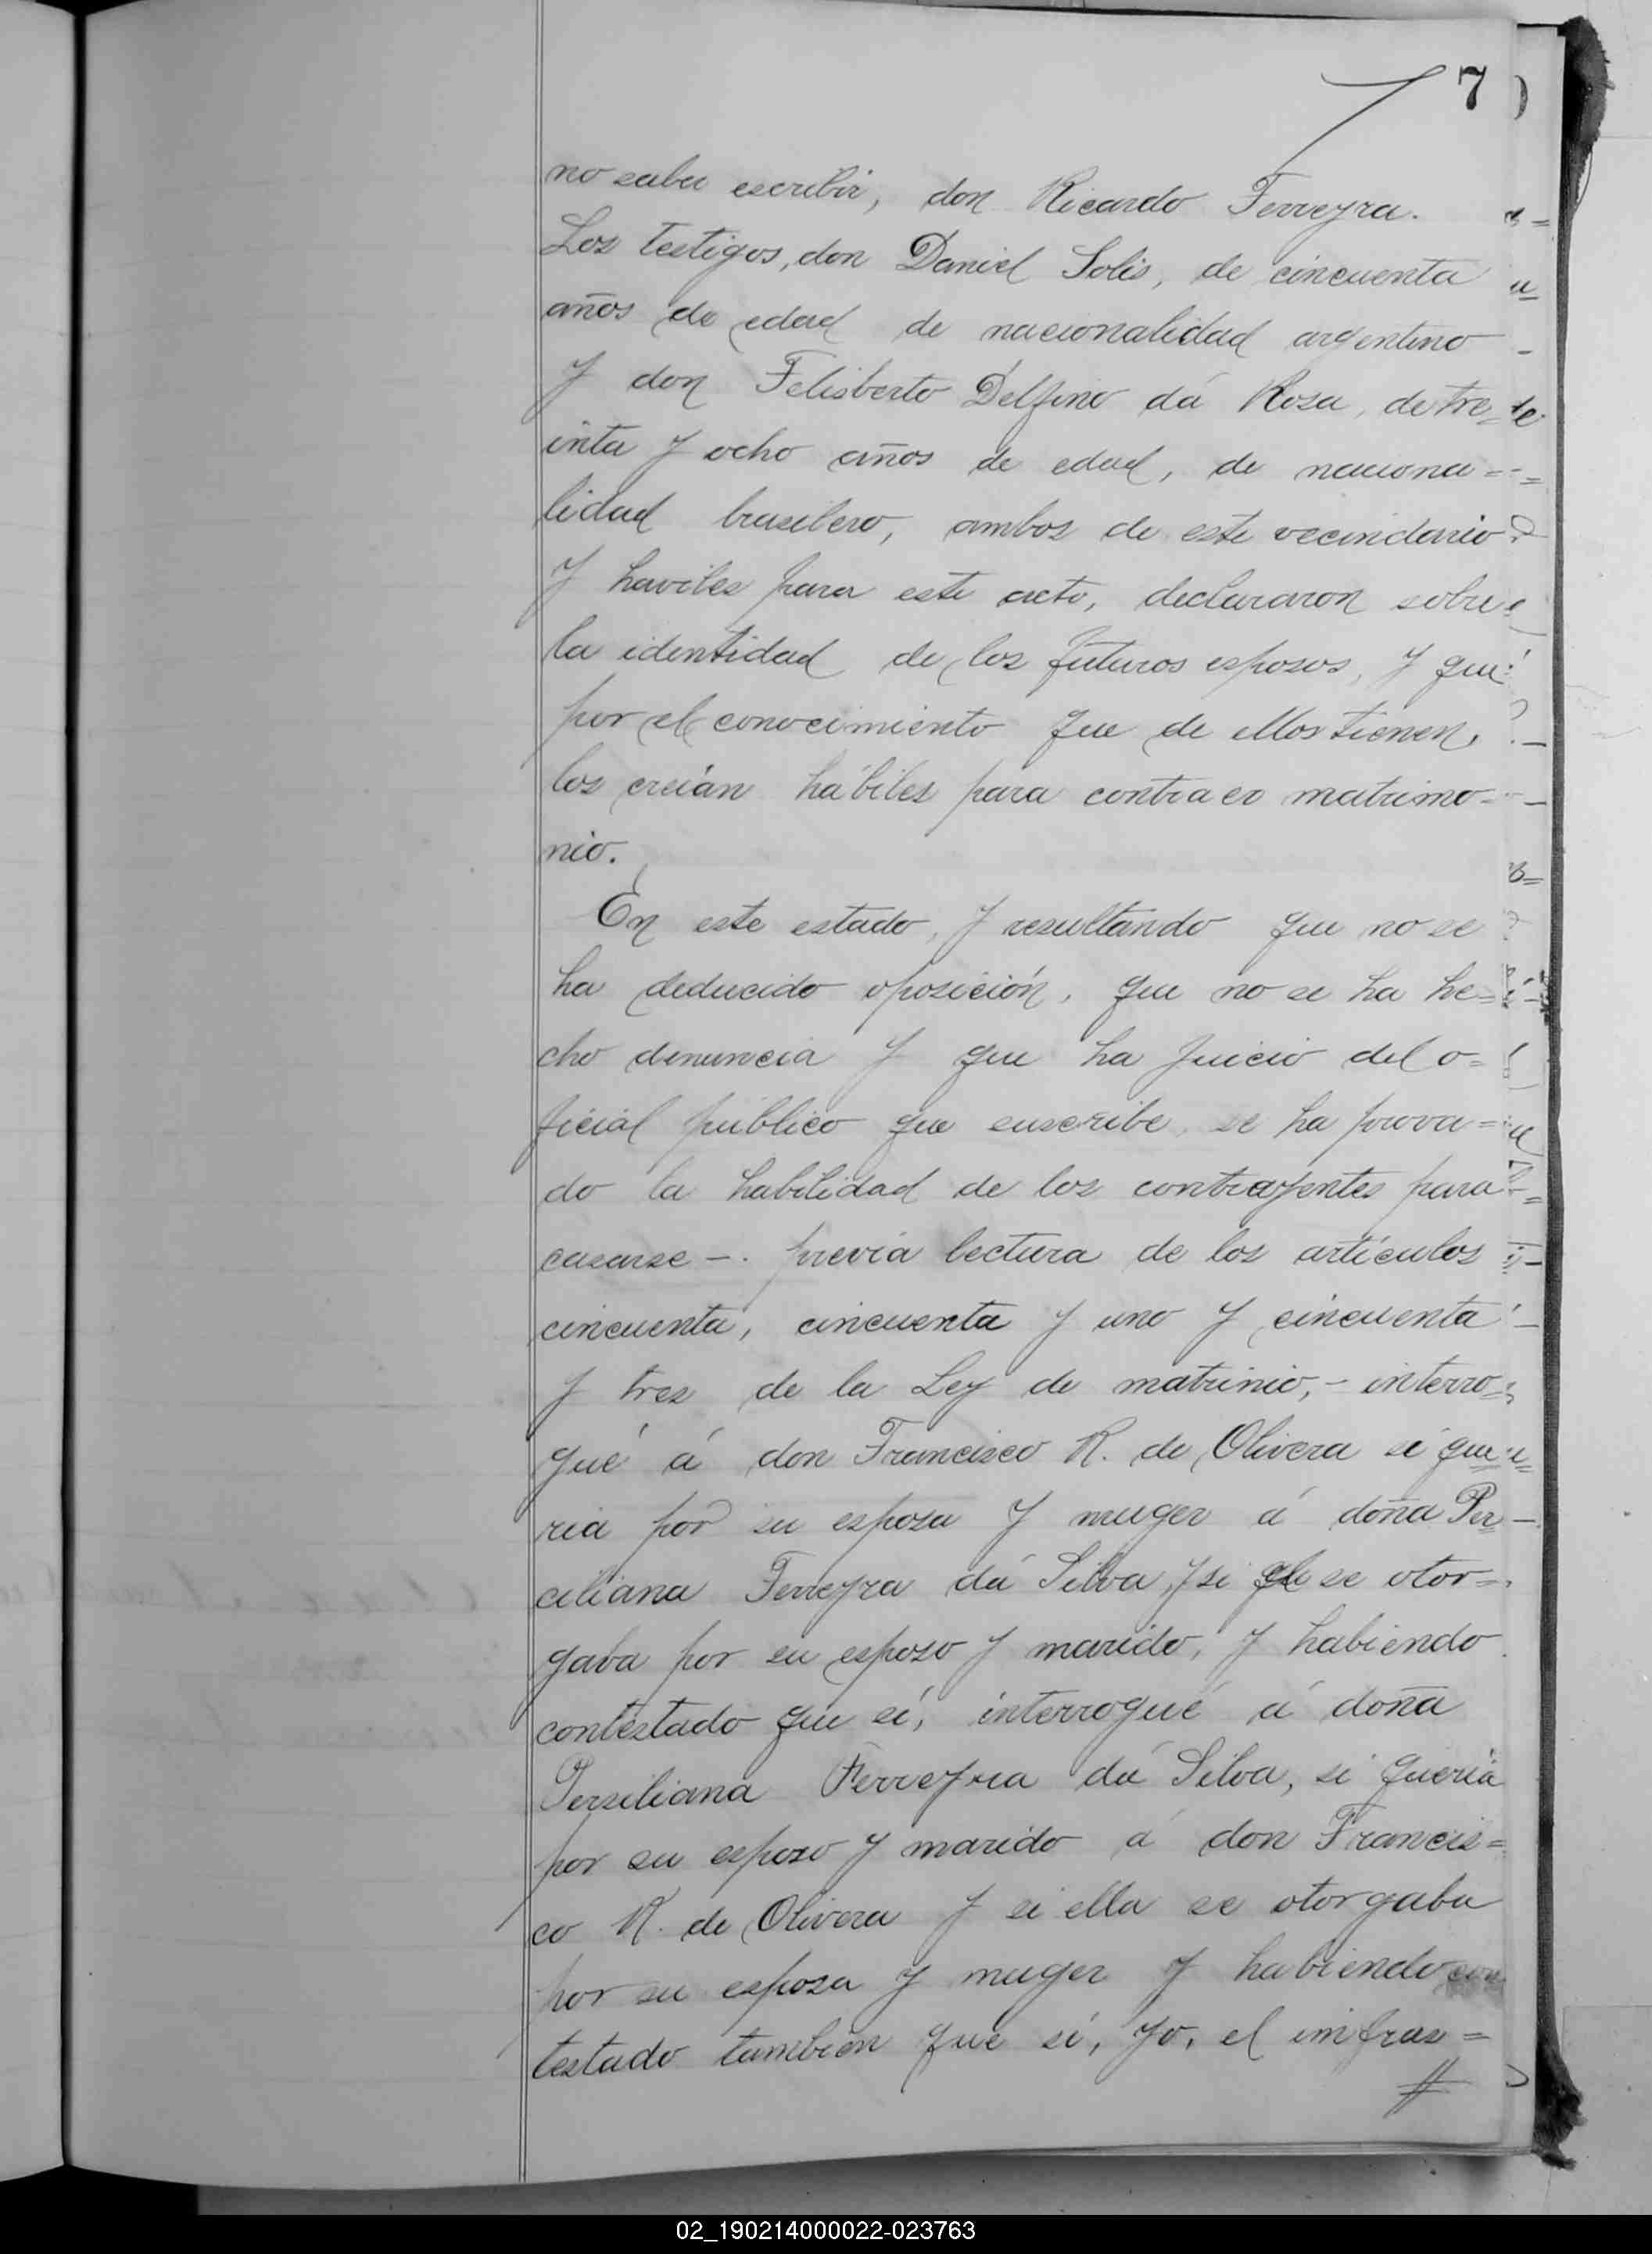 7
no saber escribir, don Ricardo Ferreyra.
Los testigos, don Daniel Solis, de cincuenta
años de edad de nacionalidad argentino
y don Felisberto Delfino dá Rosa, de tre=
inta y ocho años de edad, de naciona=
lidad brasilero, ambos de este vecindario
y haviles para este acto, declararon sobre
la identidad de los futuros esposos, y que
por el conocimiento que de ellos tienen,
los creían hábiles para contraer matrimo=
nio.
En este estado, y resultando que no se
ha deducido oposición, que no se ha he=
cho denuncia y que ha juicio del o=
ficial público que suscribe, se ha prova=
do la habilidad de los contrayentes para
casarse -. previa lectura de los artículos
cincuenta, cincuenta y uno y cincuenta
y tres de la Ley de matrinio, - interro=
gué á don Francisco R. de Olivera si que=
ria por su esposa y muger á doña Per=
ciliana Ferreyra dá Silva, y si el se otor=
gaba por su esposo y marido, y habiendo
contestado que sí, interrogué á doña
Persiliana Ferreyra dá Silva, si quería
por su esposo y marido á don Francis=
co R. de Olivera y si ella se otorgaba
por su esposa y muger y habiendo con
testado tambien que sí, yo, el infras=
02_190214000022-023763